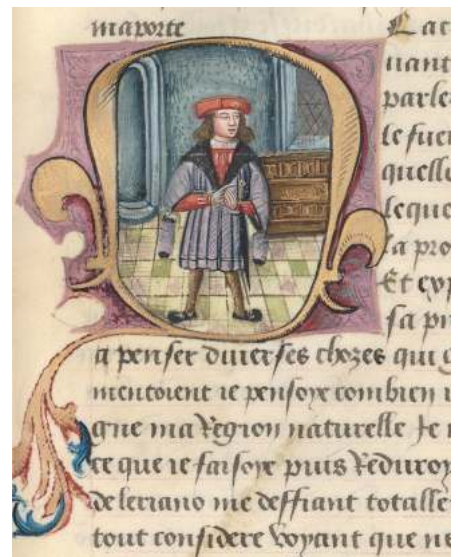 maporte Lat
uant
parle
le fuer
quelle
leque
la pro
Et
sa pr
a penser diuerses chozes qui
mentoient ie pensoye combien
gne ma Region naturelle Je
ce que ie faisoye puis Reduroy
de leriano me deffiant totalle
tout considere Voyant que ne